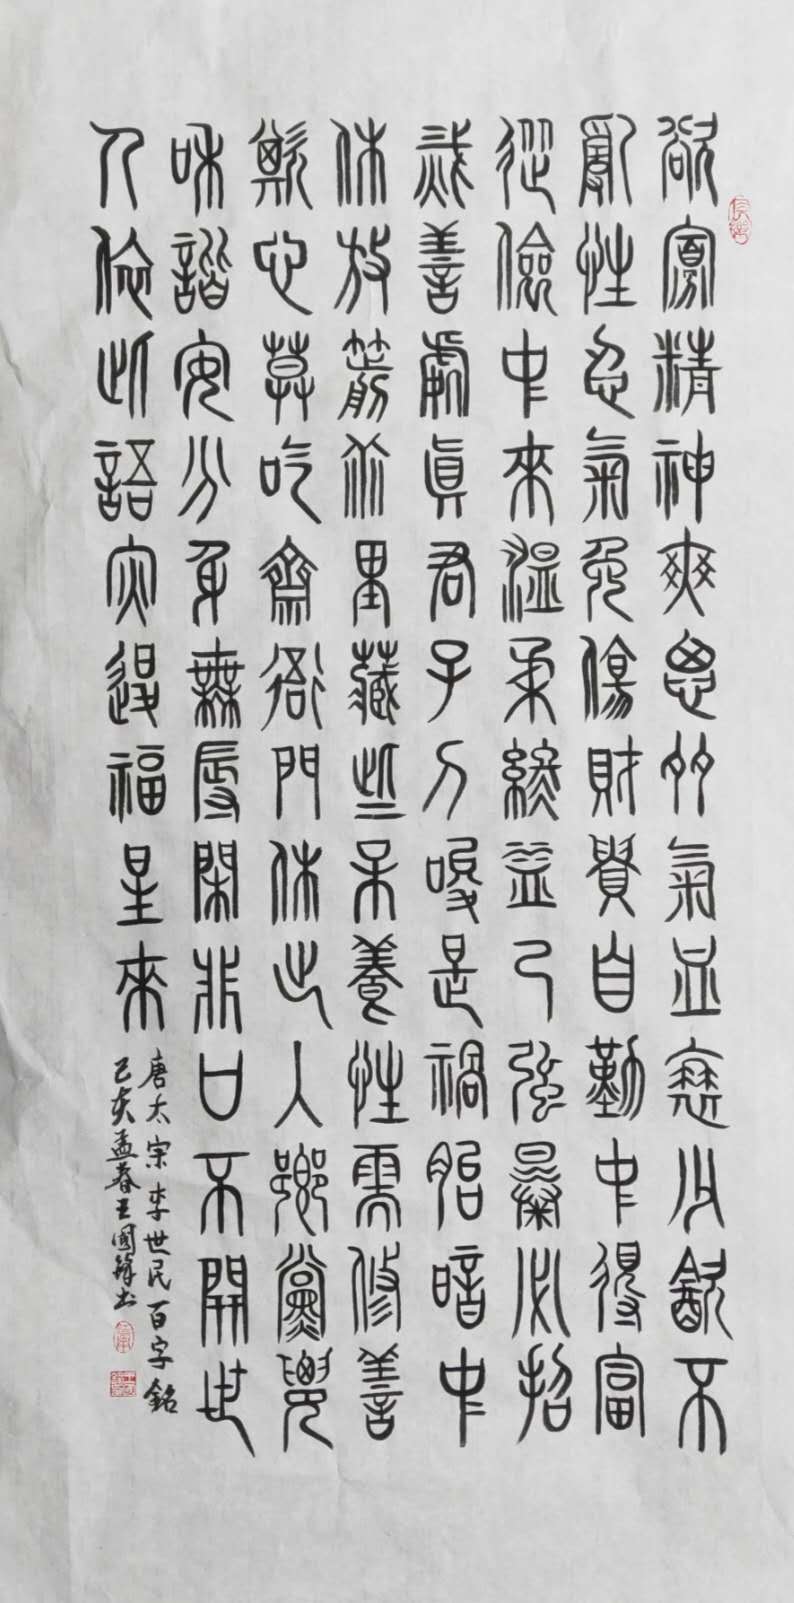 欲寡精神爽思多氣血衰少飲不
亂性忍氣免傷財貴自勤中得富
從儉中來溫柔終益己強暴必招
烖善處真君子刁唆是禍胎暗中
休放箭乖里藏些呆養性需修善
欺心莫吃齋衙門休出入鄉黨要
和諧安分身無辱閑非口不開世
人依此語灾退福星來
唐太宗李世民百字銘
己亥孟春王國鋒书